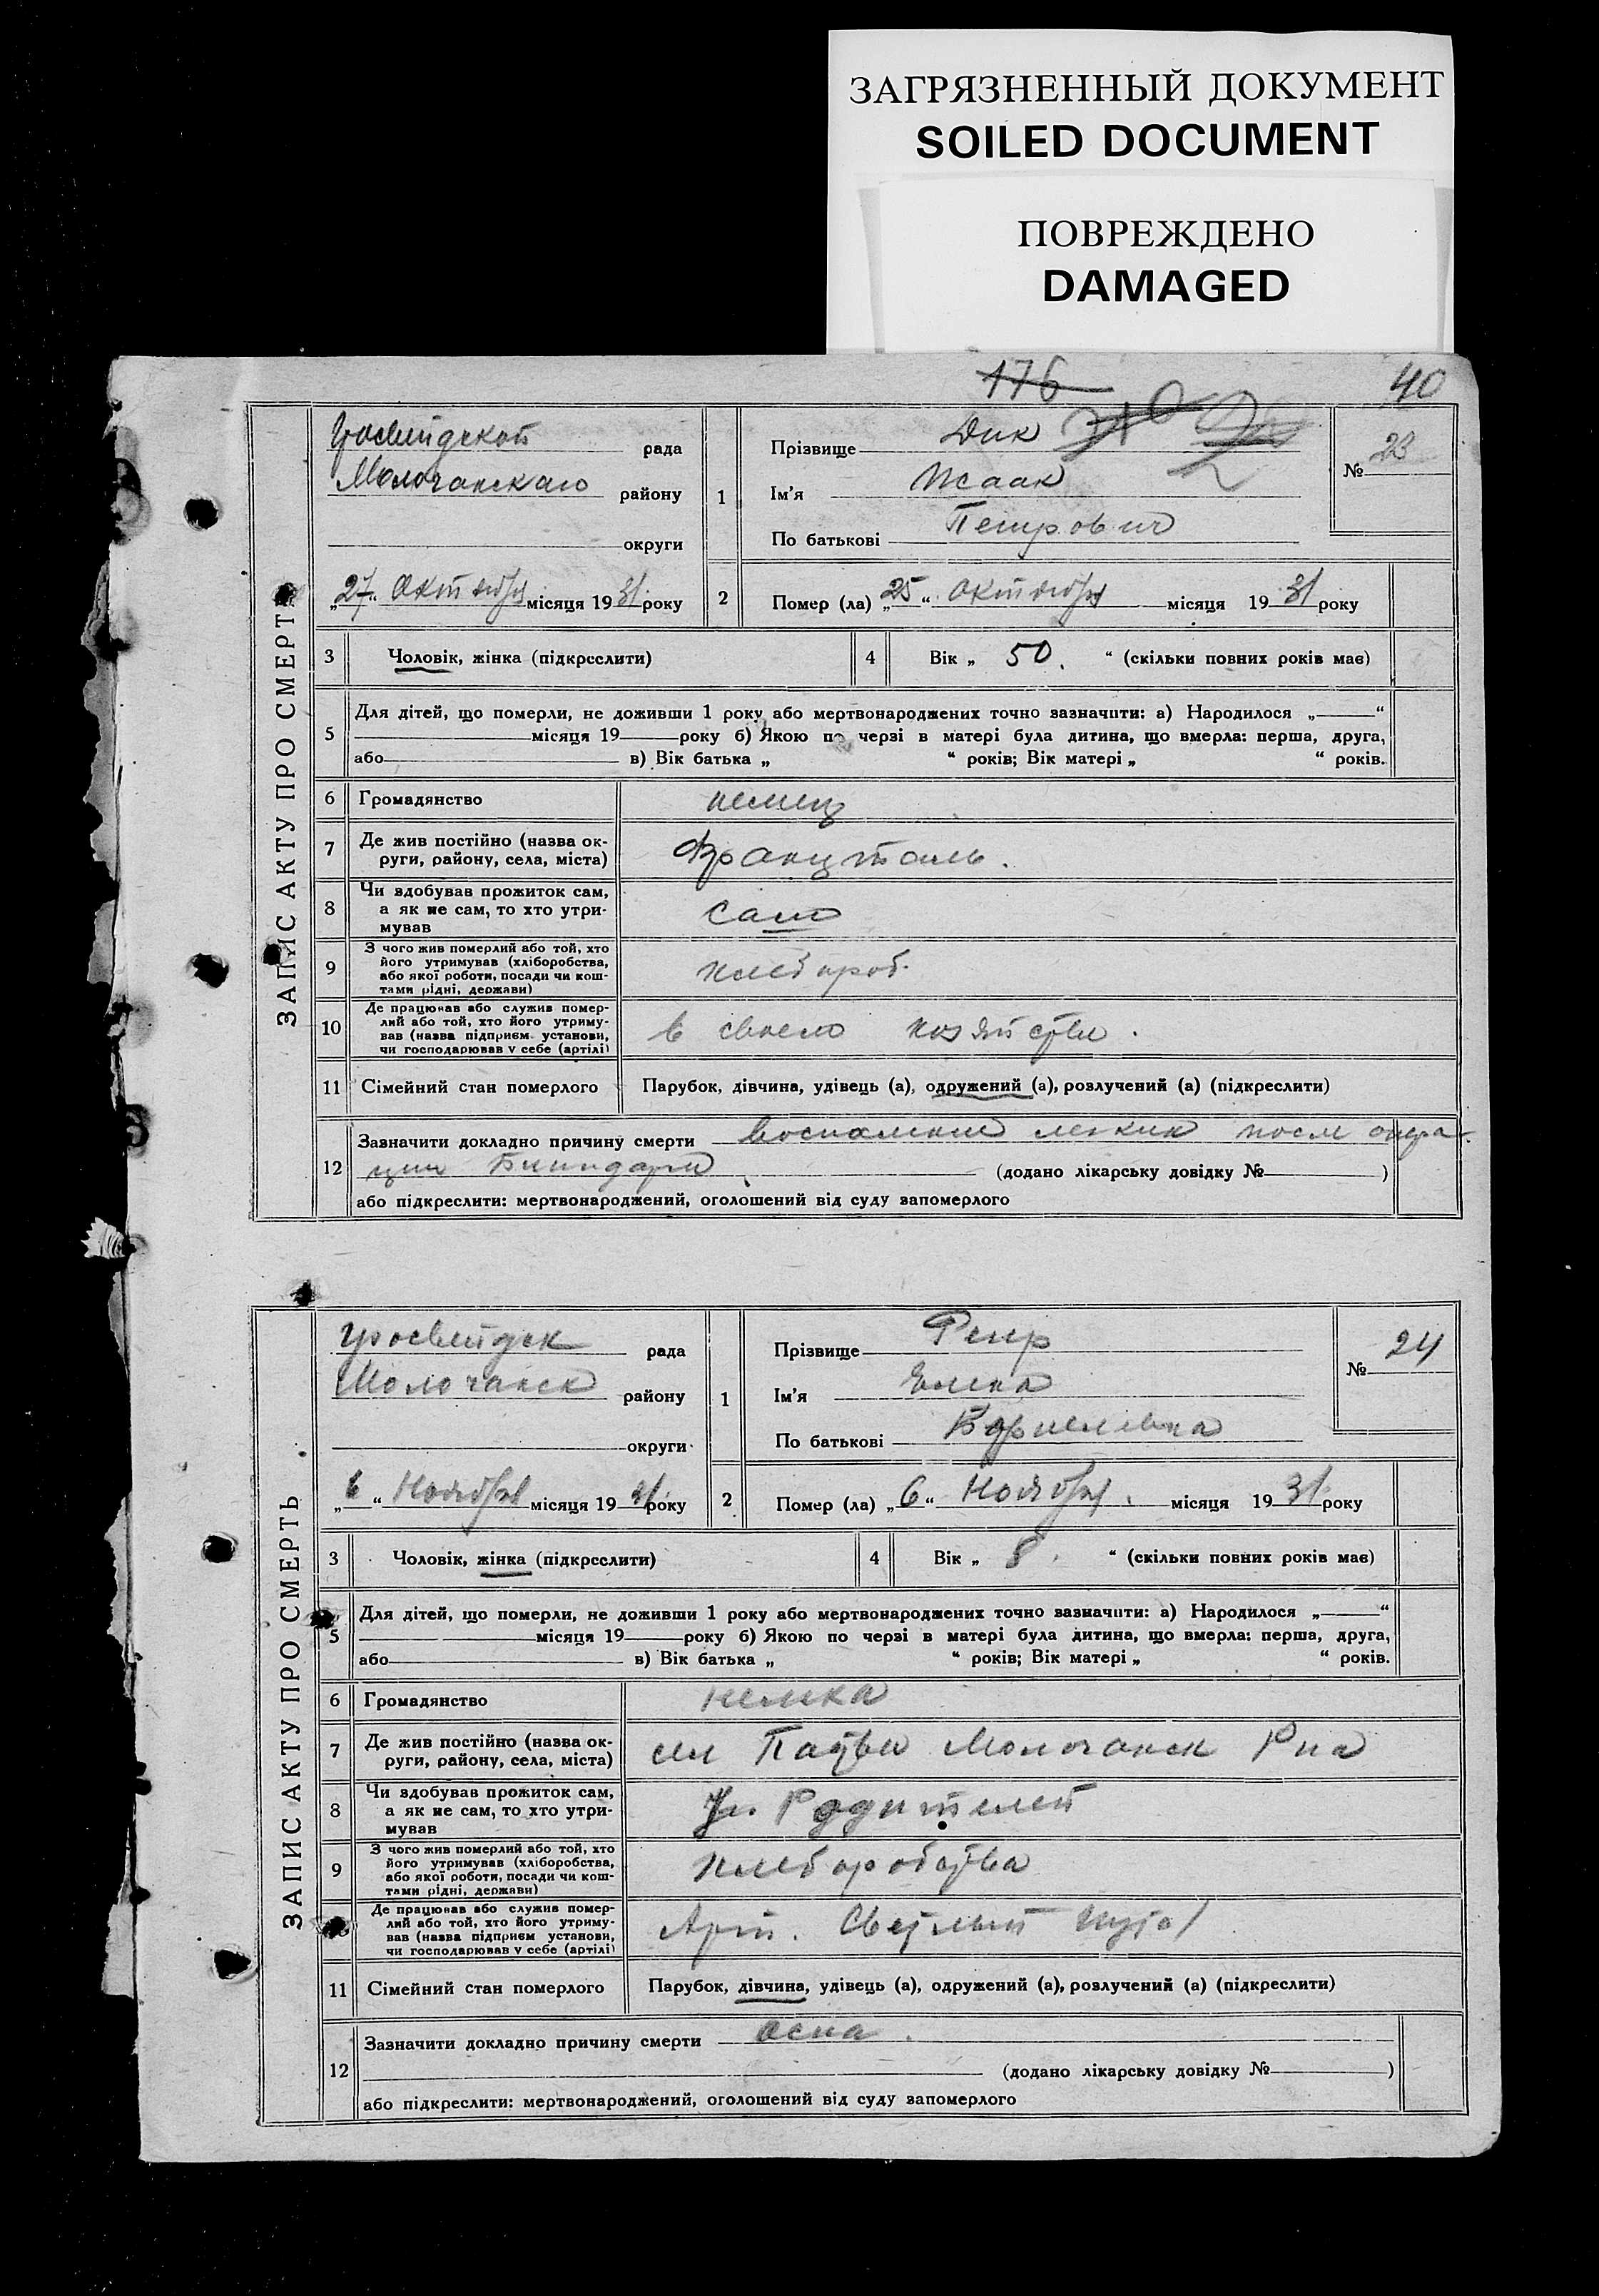 ЗАГРЯЗНЕННЫЙ ДОКУМЕНТ
SOILED DOCUMENT
ПОВРЕЖДЕНО
DAMAGED
176
40
ЗАПИС АКТУ ПРО СМЕРТЬ
рада
Молочанскаго району
округи
„27“ Октября місяця 1931 року
1 Прізвище Дик
Ім'я Исаак
По батькові Петрович
№ 23
2 Помер (ла) „25“ Октября місяця 1931 року
3 Чоловік, жінка (підкреслити)
4 Вік „ 50. “ (скільки повних років має)
5 Для дітей, що померли, не доживши 1 року або мертвонароджених точно зазначити: а) Народилося „ “
місяця 19 року б) Якою по черзі в матері була дитина, що вмерла: перша, друга,
або в) Вік батька „ “ років; Вік матері „ “ років.
6 Громадянство немец
7 Де жив постійно (назва ок-
руги, району, села, міста) Франкталь.
8 Чи здобував прожиток сам,
а як не сам, то хто утри-
мував
сам
9 З чого жив померлий або той, хто
його утримував (хліборобства,
або якої роботи, посади чи кош-
тами рідні, держави)
хлебороб.
10 Де працював або служив помер-
лий або той, хто його утриму-
вав (назва підприєм. установи,
чи господарював у себе (артілі)
в своем хозяйстве.
11 Сімейний стан померлого Парубок, дівчина, удівець (а), одружений (а), розлучений (а) (підкреслити)
12 Зазначити докладно причину смерти воспаление легких после опера-
ции (додано лікарську довідку № )
або підкреслити: мертвонароджений, оголошений від суду запомерлого
ЗАПИС АКТУ ПРО СМЕРТЬ
рада
Молочанск району
округи
„6“ Ноября місяця 1931 року
1 Прізвище
Ім'я Елена
По батькові
№ 24
2 Помер (ла) „6“ Ноября. місяця 1931 року
3 Чоловік, жінка (підкреслити)
4 Вік „ 8. “ (скільки повних років має)
5 Для дітей, що померли, не доживши 1 року або мертвонароджених точно зазначити: а) Народилося „ “
місяця 19 року б) Якою по черзі в матері була дитина, що вмерла: перша, друга,
або в) Вік батька „ “ років; Вік матері „ “ років.
6 Громадянство немка
7 Де жив постійно (назва ок-
руги, району, села, міста) Молочанск Рна
8 Чи здобував прожиток сам,
а як не сам, то хто утри-
мував
Родителей
9 З чого жив померлий або той, хто
його утримував (хліборобства,
або якої роботи, посади чи кош-
тами рідні, держави)
хлеборобства
Де працював або служив помер-
лий або той, хто його утриму-
вав (назва підприєм установи,
чи господарював у себе (артілі)
Арт. Светлый путь
11 Сімейний стан померлого Парубок, дівчина, удівець (а), одружений (а), розлучений (а) (підкреслити)
12 Зазначити докладно причину смерти оспа.
(додано лікарську довідку № )
або підкреслити: мертвонароджений, оголошений від суду запомерлого